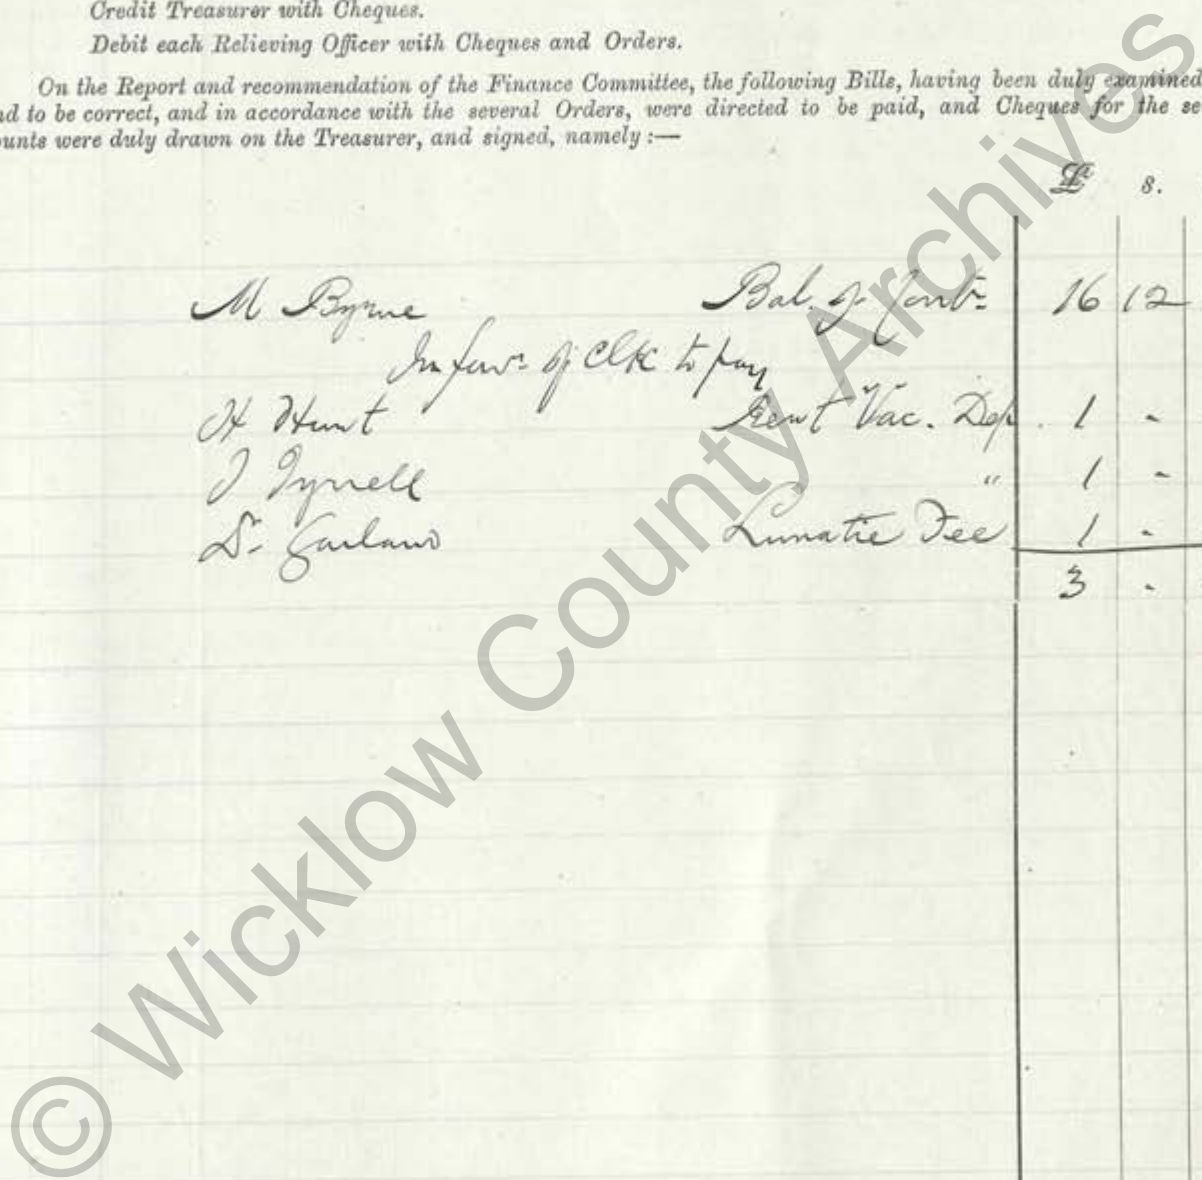 Credit Treasurer with Cheques.
Debit each Relieving Officer with Cheques and Orders.
On the Report and recommendation of the Finance Committee, the following Bills, having been duly examined
nd to be correct, and in accordance with the several Orders, were directed to be paid, and Cheques for the se
ounts were duly drawn on the Treasurer, and signed, namely :—
£ s.
M Byrne Bal. of Cont. 16 12
In favr. of Clk to pay
H Hunt Rent Vac. Dep. 1 -
J Tyrrell " 1 -
Dr Garland Lunatic Fee 1 -
3 -
© Wicklow County Archives